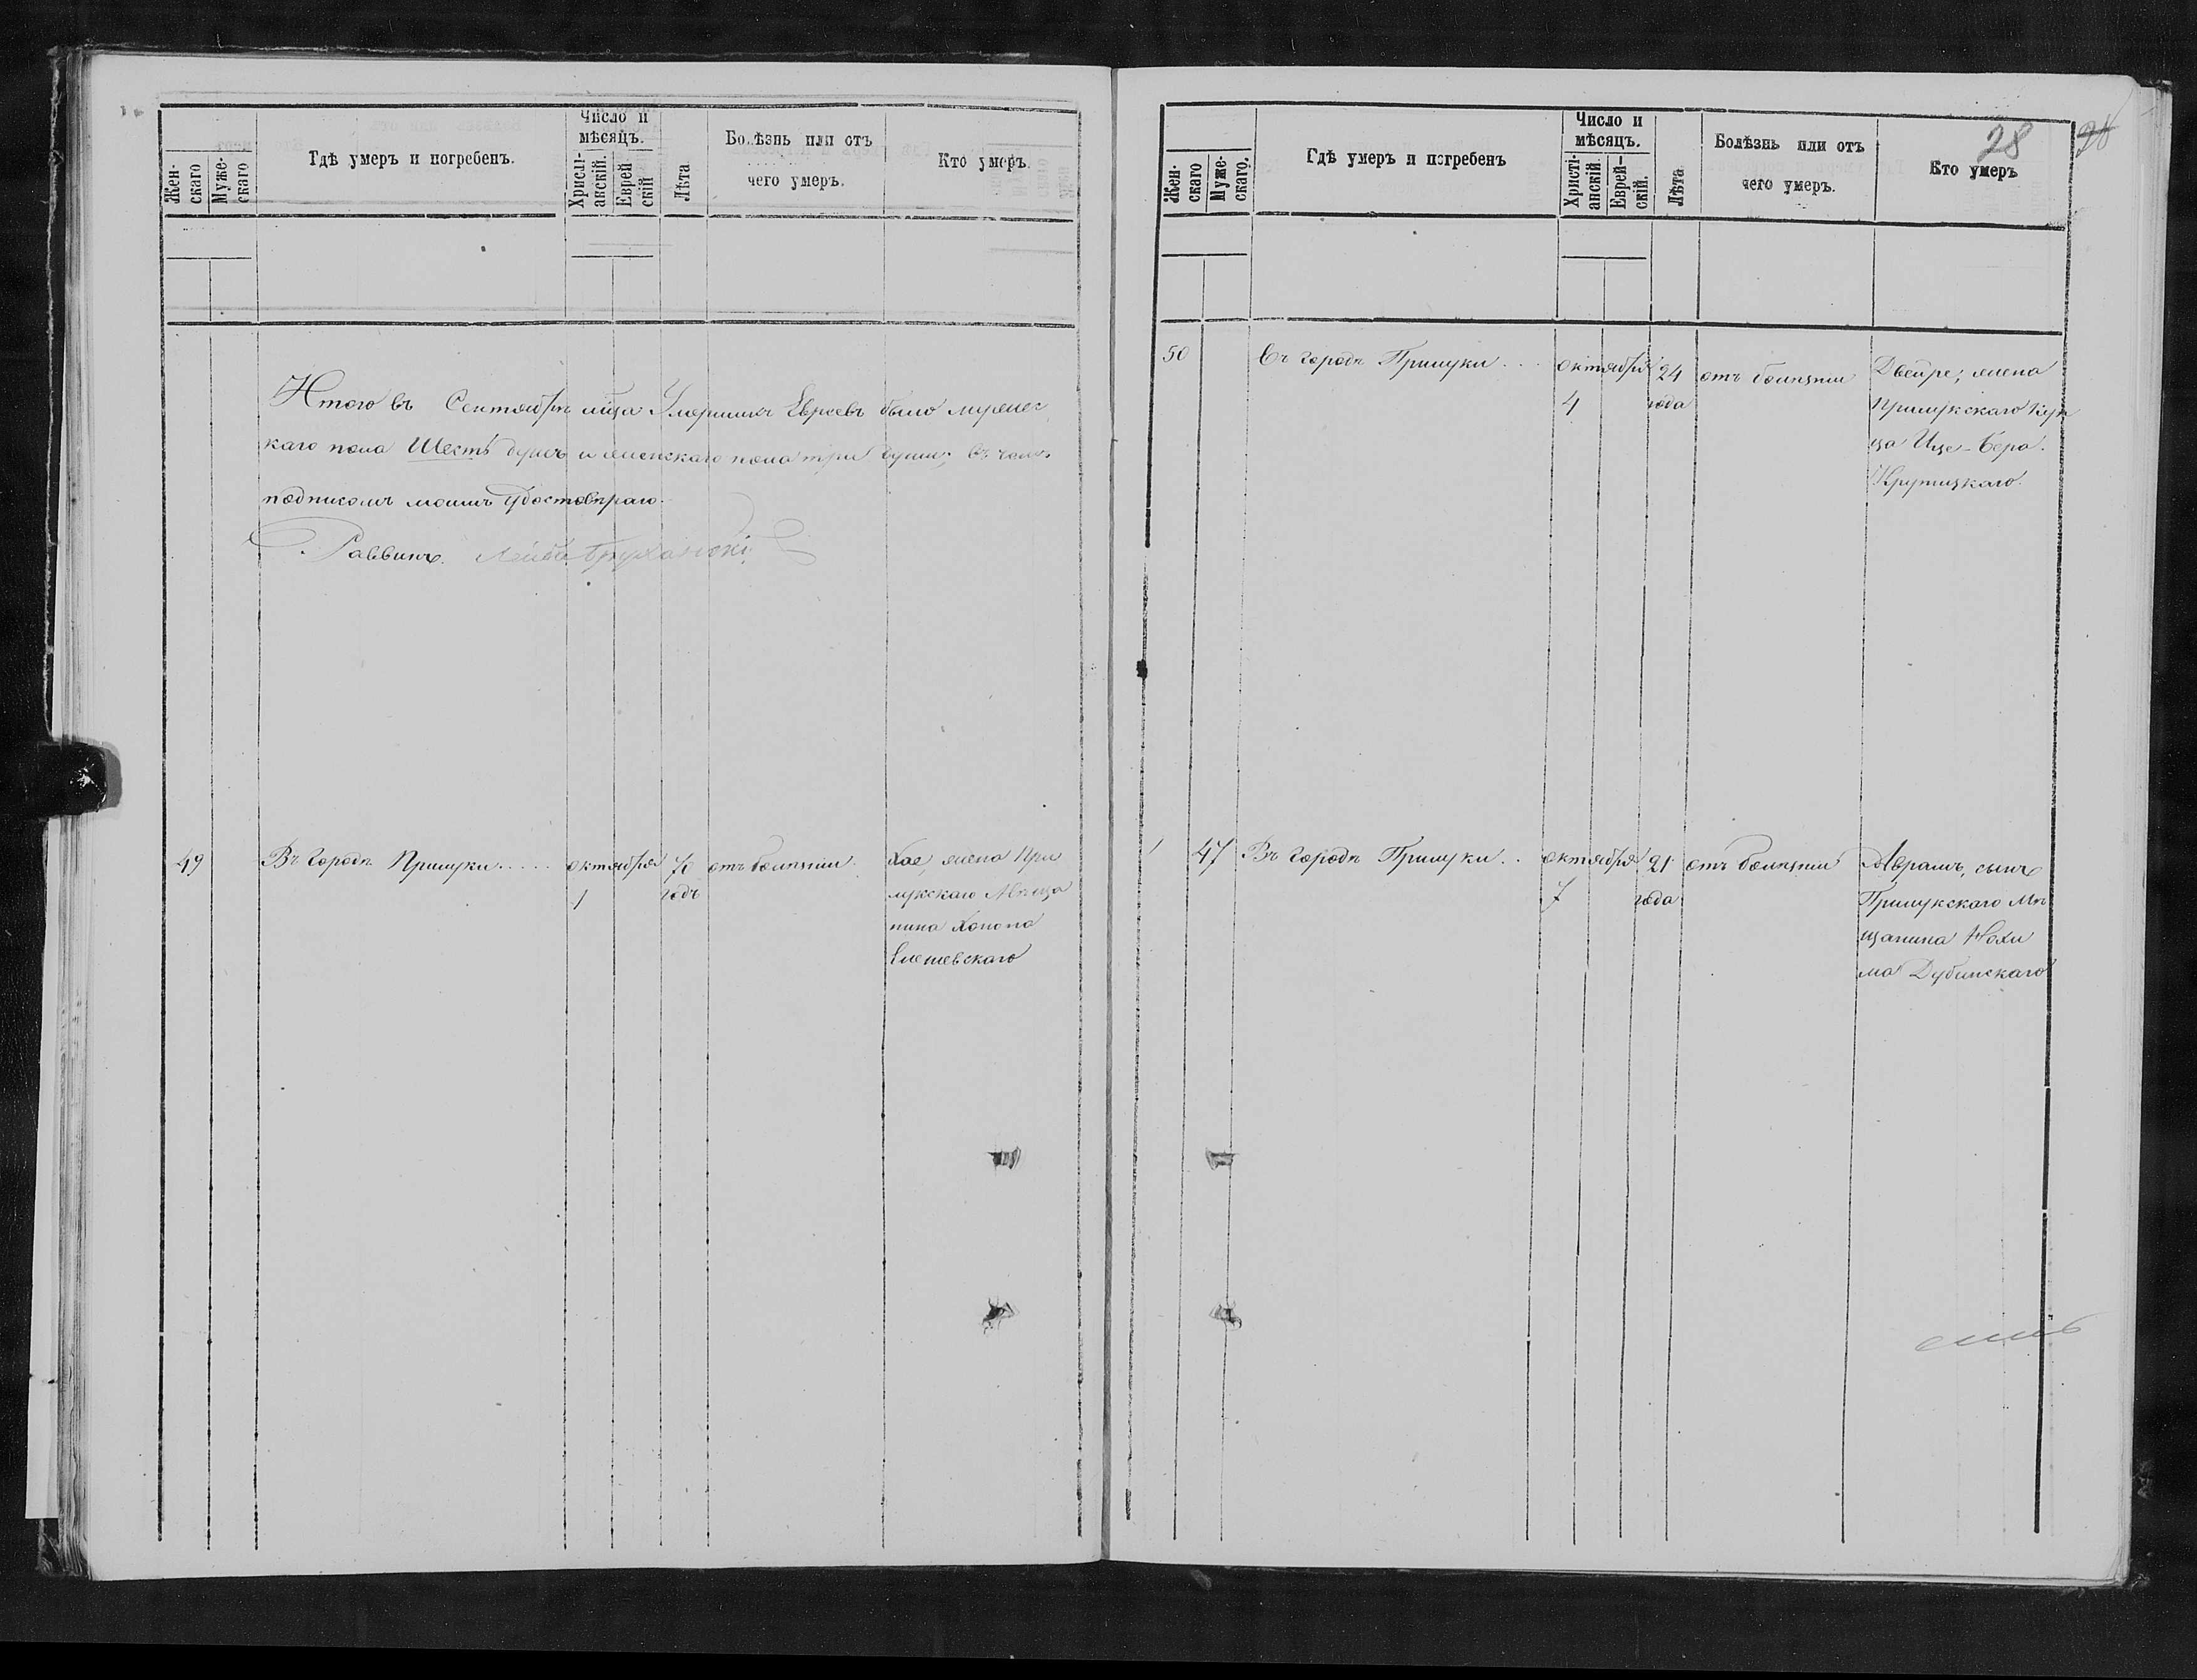 Жен-
скаго
Муже-
скаго
Гдѣ умеръ и погребенъ.
Число и
мѣсяцъ.
Христі-
анскій.
Еврей
скій
Лѣта
Болѣзнь или отъ
чего умеръ.
Кто умеръ.
Итого въ Сентябрѣ м-ца Умершихъ Евреевъ было мужес
каго пола Шесть душъ и женскаго пола три души; въ чемъ
подписомъ моимъ Удостовѣраю.
Раввинъ.
49
Въ городѣ Прилуки
октября
1
70
годъ
отъ болѣзни
Хае, жена При
лукскаго Мѣща
нина Хонона
50
28
28
Жен-
скаго
Муже-
скаго.
Гдѣ умеръ и погребенъ
Число и
мѣсяцъ.
Христі-
анскій
Еврей-
скій.
Лѣта
Болѣзнь или отъ
чего умеръ.
Кто умеръ
Въ городѣ Прилуки
октября
4
24
года
отъ болѣзни
Двейре, жена
Прилукскаго Куп
ца Ице-Бера
Крупицкаго
47
Въ городѣ Прилуки
октября
7
21
года
отъ болѣзни
Абрамъ, сынъ
Прилукскаго Мѣ
щанина Нохи
ма Дубинскаго